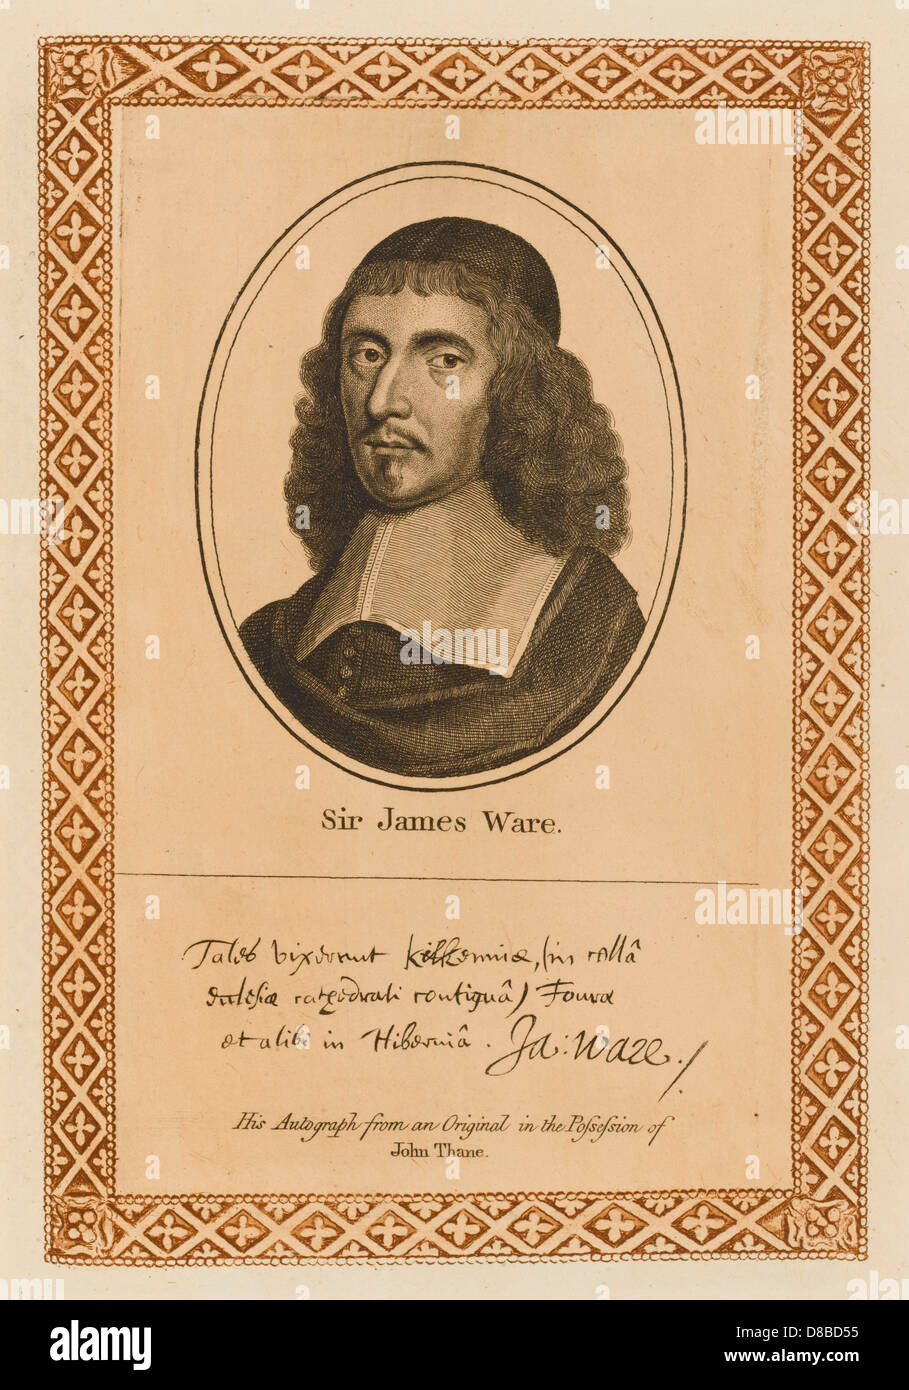 Sir James Ware.
Tales vixerunt Kilkenniæ, (in cellâ
ecclesiæ cathedrali contiguâ) Fouræ
et alibi in Hiberniâ. Ja: Ware.
His Autograph from an Original in the Possession of
John Thane.
alamy
Image ID: D8BD55
www.alamy.com